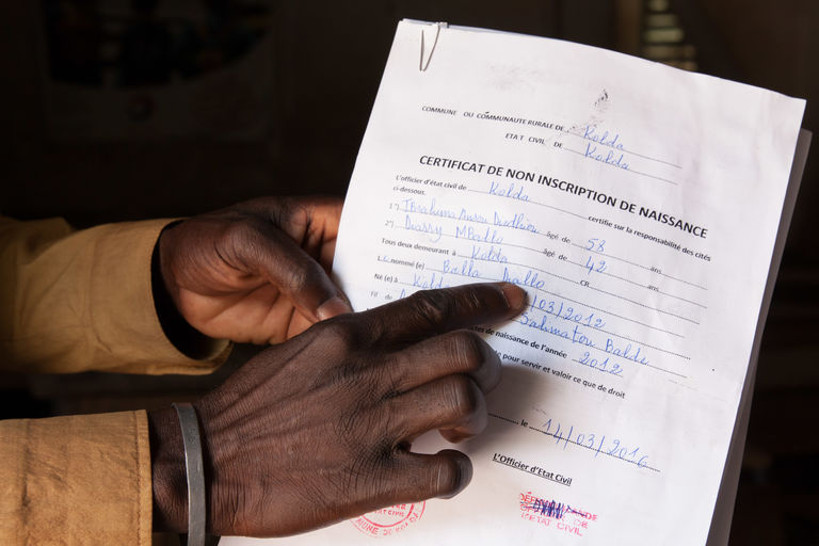 COMMUNE OU COMMUNAUTE RURALE DE Kolda
ETAT CIVIL DE Kolda
CERTIFICAT DE NON INSCRIPTION DE NAISSANCE
L'officier d'état civil de Kolda certifie sur la responsabilité des cités
ci-dessous.
1°) Ibrahima âgé de 58 ans
2°) MBallo âgé de 42 ans
Tous deux demeurant à Kolda CR
Le nommé (e) Balla Diallo
Né (e) à /03/2012
Fil de Salimatou Balde
de naissance de l'année 2012
pour servir et valoir ce que de droit
le 14/03/2016
L'Officier d'Etat Civil
ETAT CIVIL